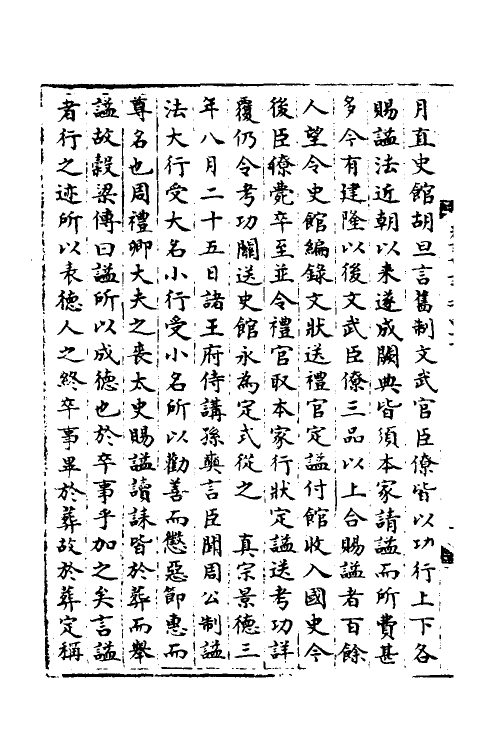 月直史館胡旦言舊制文武官臣僚皆以功行上下各
賜諡法近朝以来遂成闕典皆須本家請諡而所費甚
多今有建隆以後文武臣僚三品以上合賜諡者百餘
人望令史館編錄文狀送禮官定諡付館收入國史今
後臣僚薨卒至並令禮官取本家行狀定諡送考功詳
覆仍令考功關送史館永為定式從之　真宗景德三
年八月二十五日諸王府侍講孫奭言臣聞周公制諡
法大行受大名小行受小名所以勸善而懲惡節惠而
尊名也周禮卿大夫之喪太史賜諡讀誄皆於葬而舉
諡故穀梁傳曰諡所以成德也於卒事乎加之矣言諡
者行之迹所以表德人之終卒事畢於葬故於葬定稱